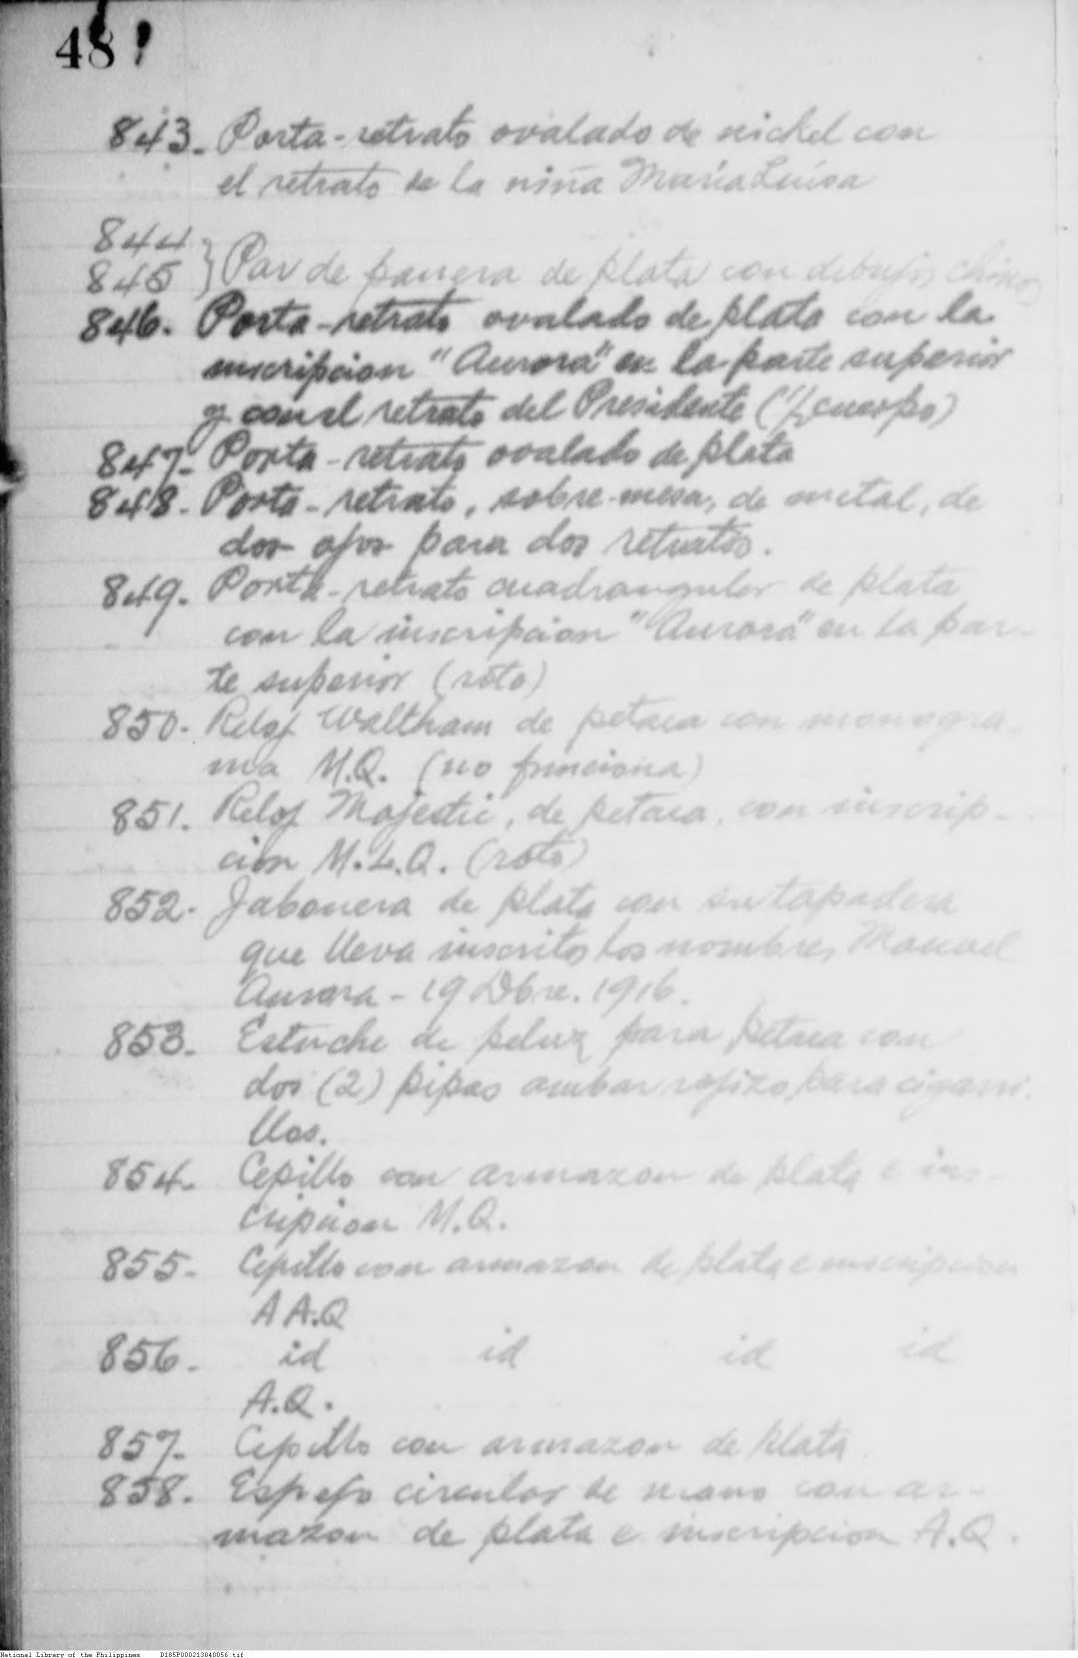 48
843. Porta-retrato ovalado de nickel con
el retrato de la niña Maria Luisa
844
845 } Par de panera de plata con debujos chinos
846. Porta-retrato ovalado de plata con la
inscripcion "Aurora" en la parte superior
y con el retrato del Presidente (1/2 cuerpo)
847. Porta-retrato ovalado de plata
848. Porta-retrato, sobre-mesa, de metal, de
dos ojos para dos retratos.
849. Porta-retrato cuadrangular de plata
con la inscripcion "Aurora" en la par-
te superior (roto)
850. Reloj Waltham de petaca con monogra-
ma M.Q. (no funciona)
851. Reloj Majestic, de petaca, con inscrip-
cion M.L.Q. (roto)
852. Jabonera de plata con su tapadera
que lleva inscritos los nombres Manuel
Aurora - 19 Dbre. 1916.
853. Estuche de peluz para petaca con
dos (2) pipas ambar rojizo para cigarri-
llos.
854. Cepillo con armazon de plata e ins-
cripcion M.Q.
855. Cepillo con armazon de plata e inscripcion
A A.Q
856. id id id id
A.Q.
857. Cepillo con armazon de plata
858. Espejo circular de mano con ar-
mazon de plata e inscripcion A.Q.
National Library of the Philippines D185P000213040056.tif